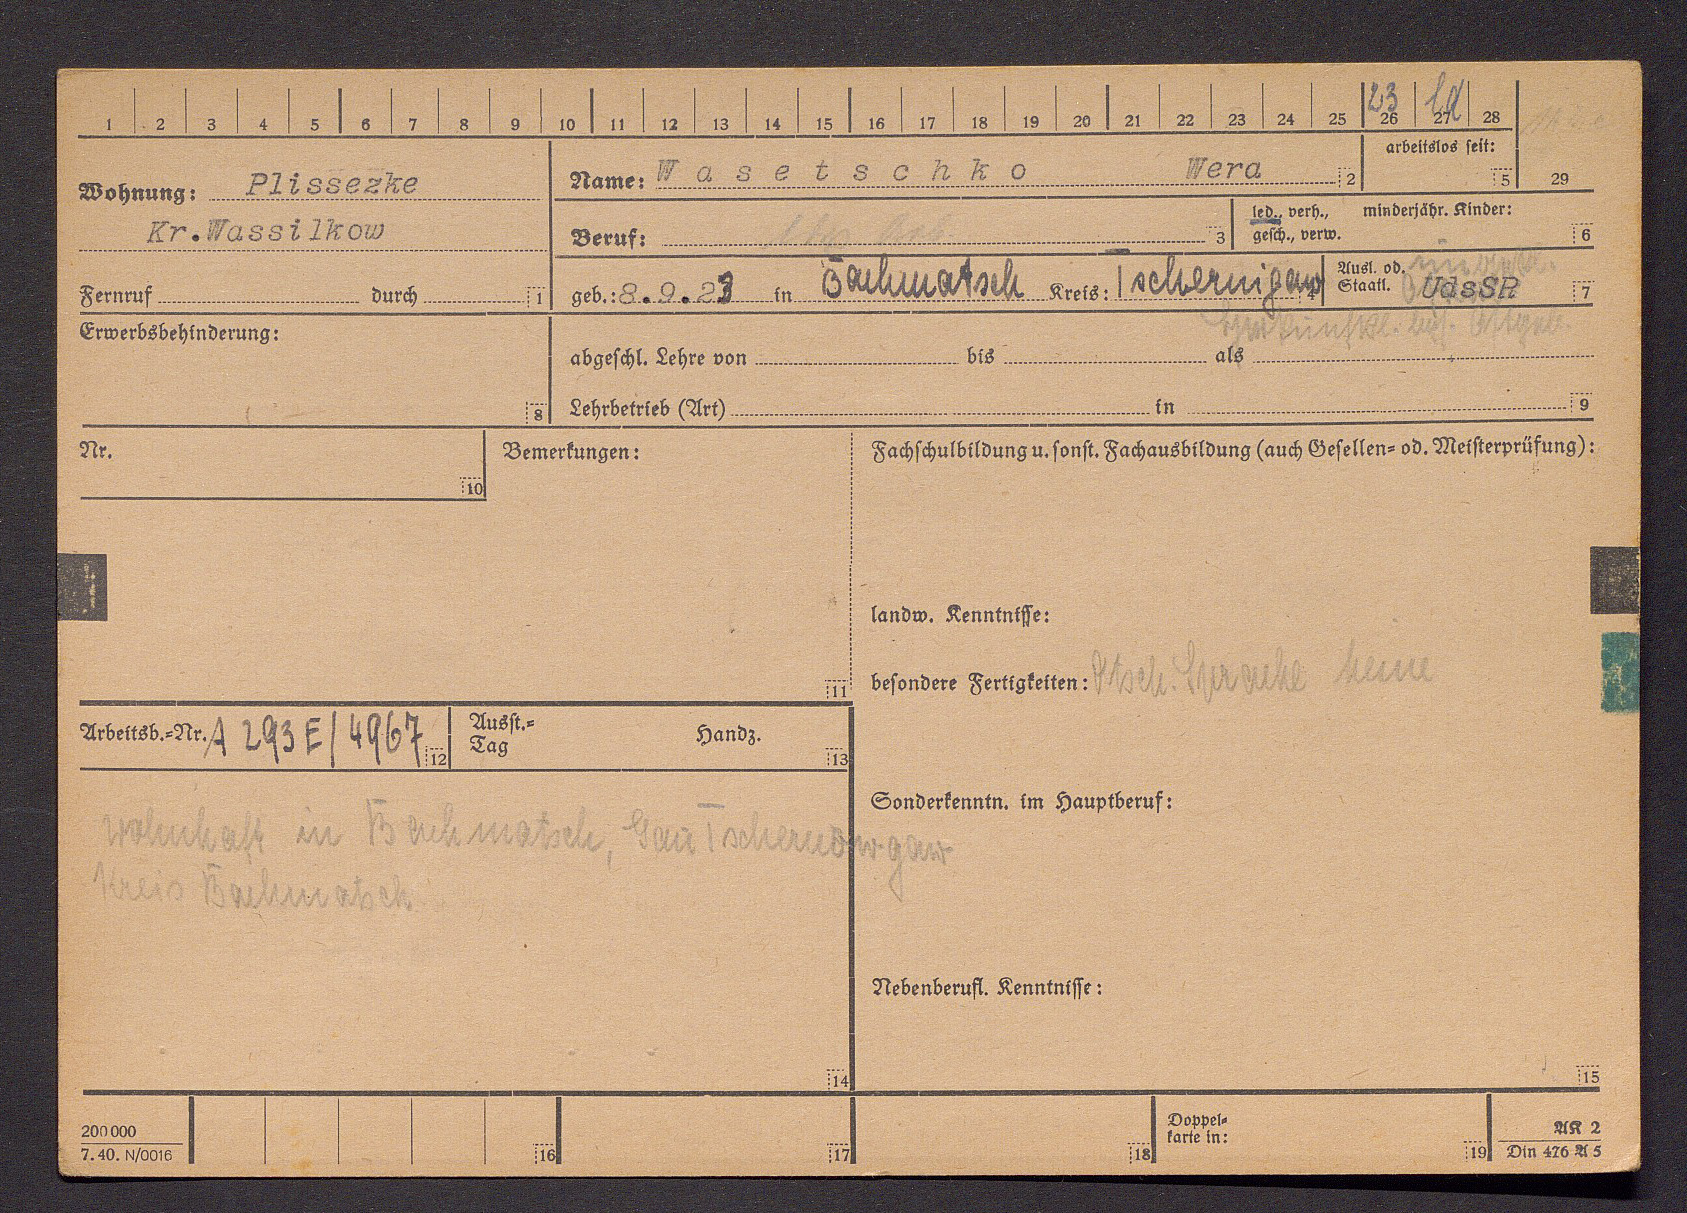 1 2 3 4 5 6 7 8 9 10 11 12 13 14 15 16 17 18 19 20 21 22 23 24 25 26 27 28
23 Ld
arbeitslos seit:
5 29
Wohnung: Plissezke
Kr.Wassilkow
Name: Wasetschko Wera 2
Beruf: 3
led., verh.,
gesch., verw.
minderjähr. Kinder:
6
Fernruf durch 1
geb.: 8.9.23 in Bachmatsch Kreis: Tschernigaw 4
Ausl. od.
Staatl. UdSSR 7
Erwerbsbehinderung:
8
abgeschl. Lehre von bis als
Lehrbetrieb (Art) in 9
Nr.
10
Bemerkungen:
11
Fachschulbildung u. sonst. Fachausbildung (auch Gesellen= od. Meisterprüfung):
landw. Kenntnisse:
besondere Fertigkeiten: Dtsch. Sprache keine
Arbeitsb.=Nr. A 293 E/4967 12
Ausst.=
Tag
Handz.
13
Sonderkenntn. im Hauptberuf:
wohnhaft in Bachmatsch, Gau
Kreis Bachmatsch
14
Nebenberufl. Kenntnisse:
15
200 000
7. 40. N/0016
16 17 18
Doppel=
karte in:
19
AK 2
Din 476 A 5